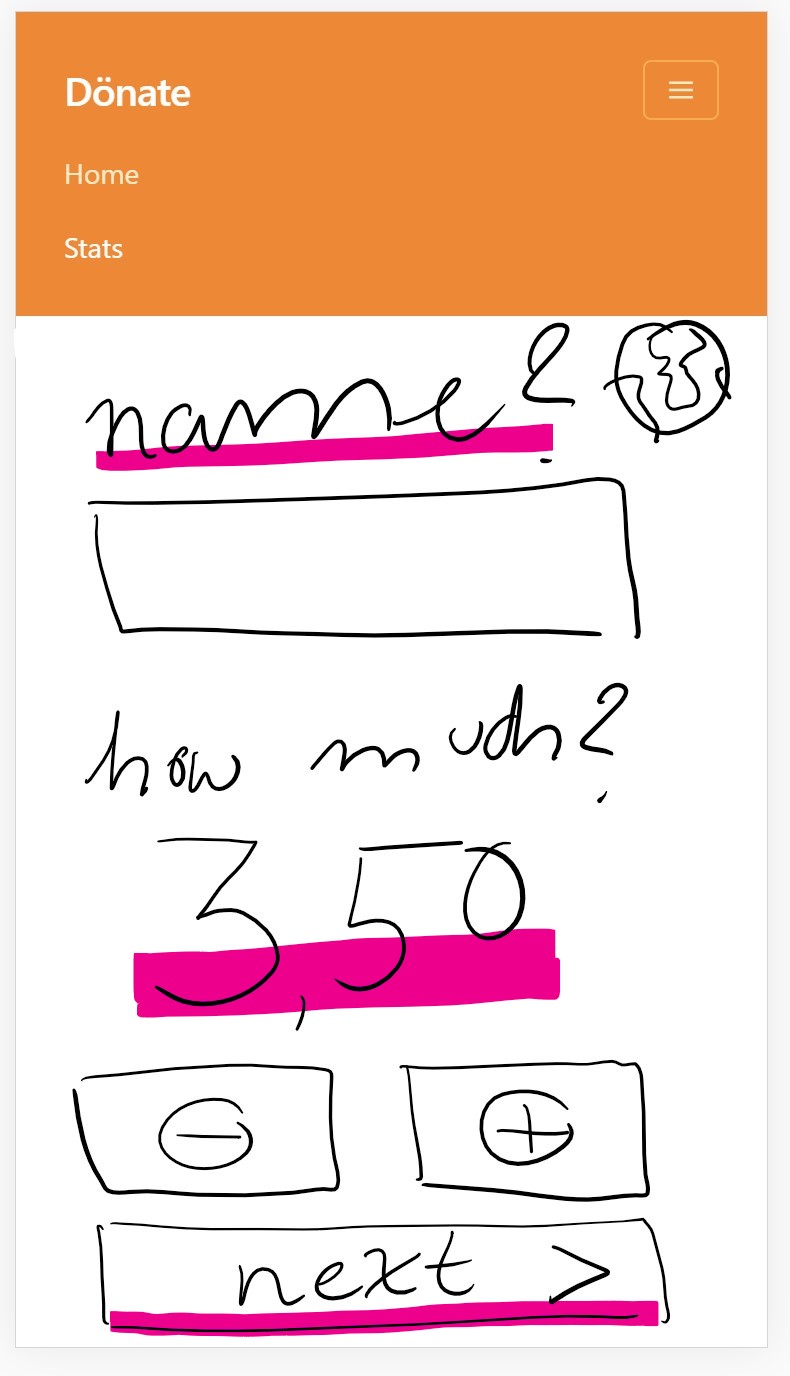 Dönate
Home
Stats
name?
how much?
3,50
next >